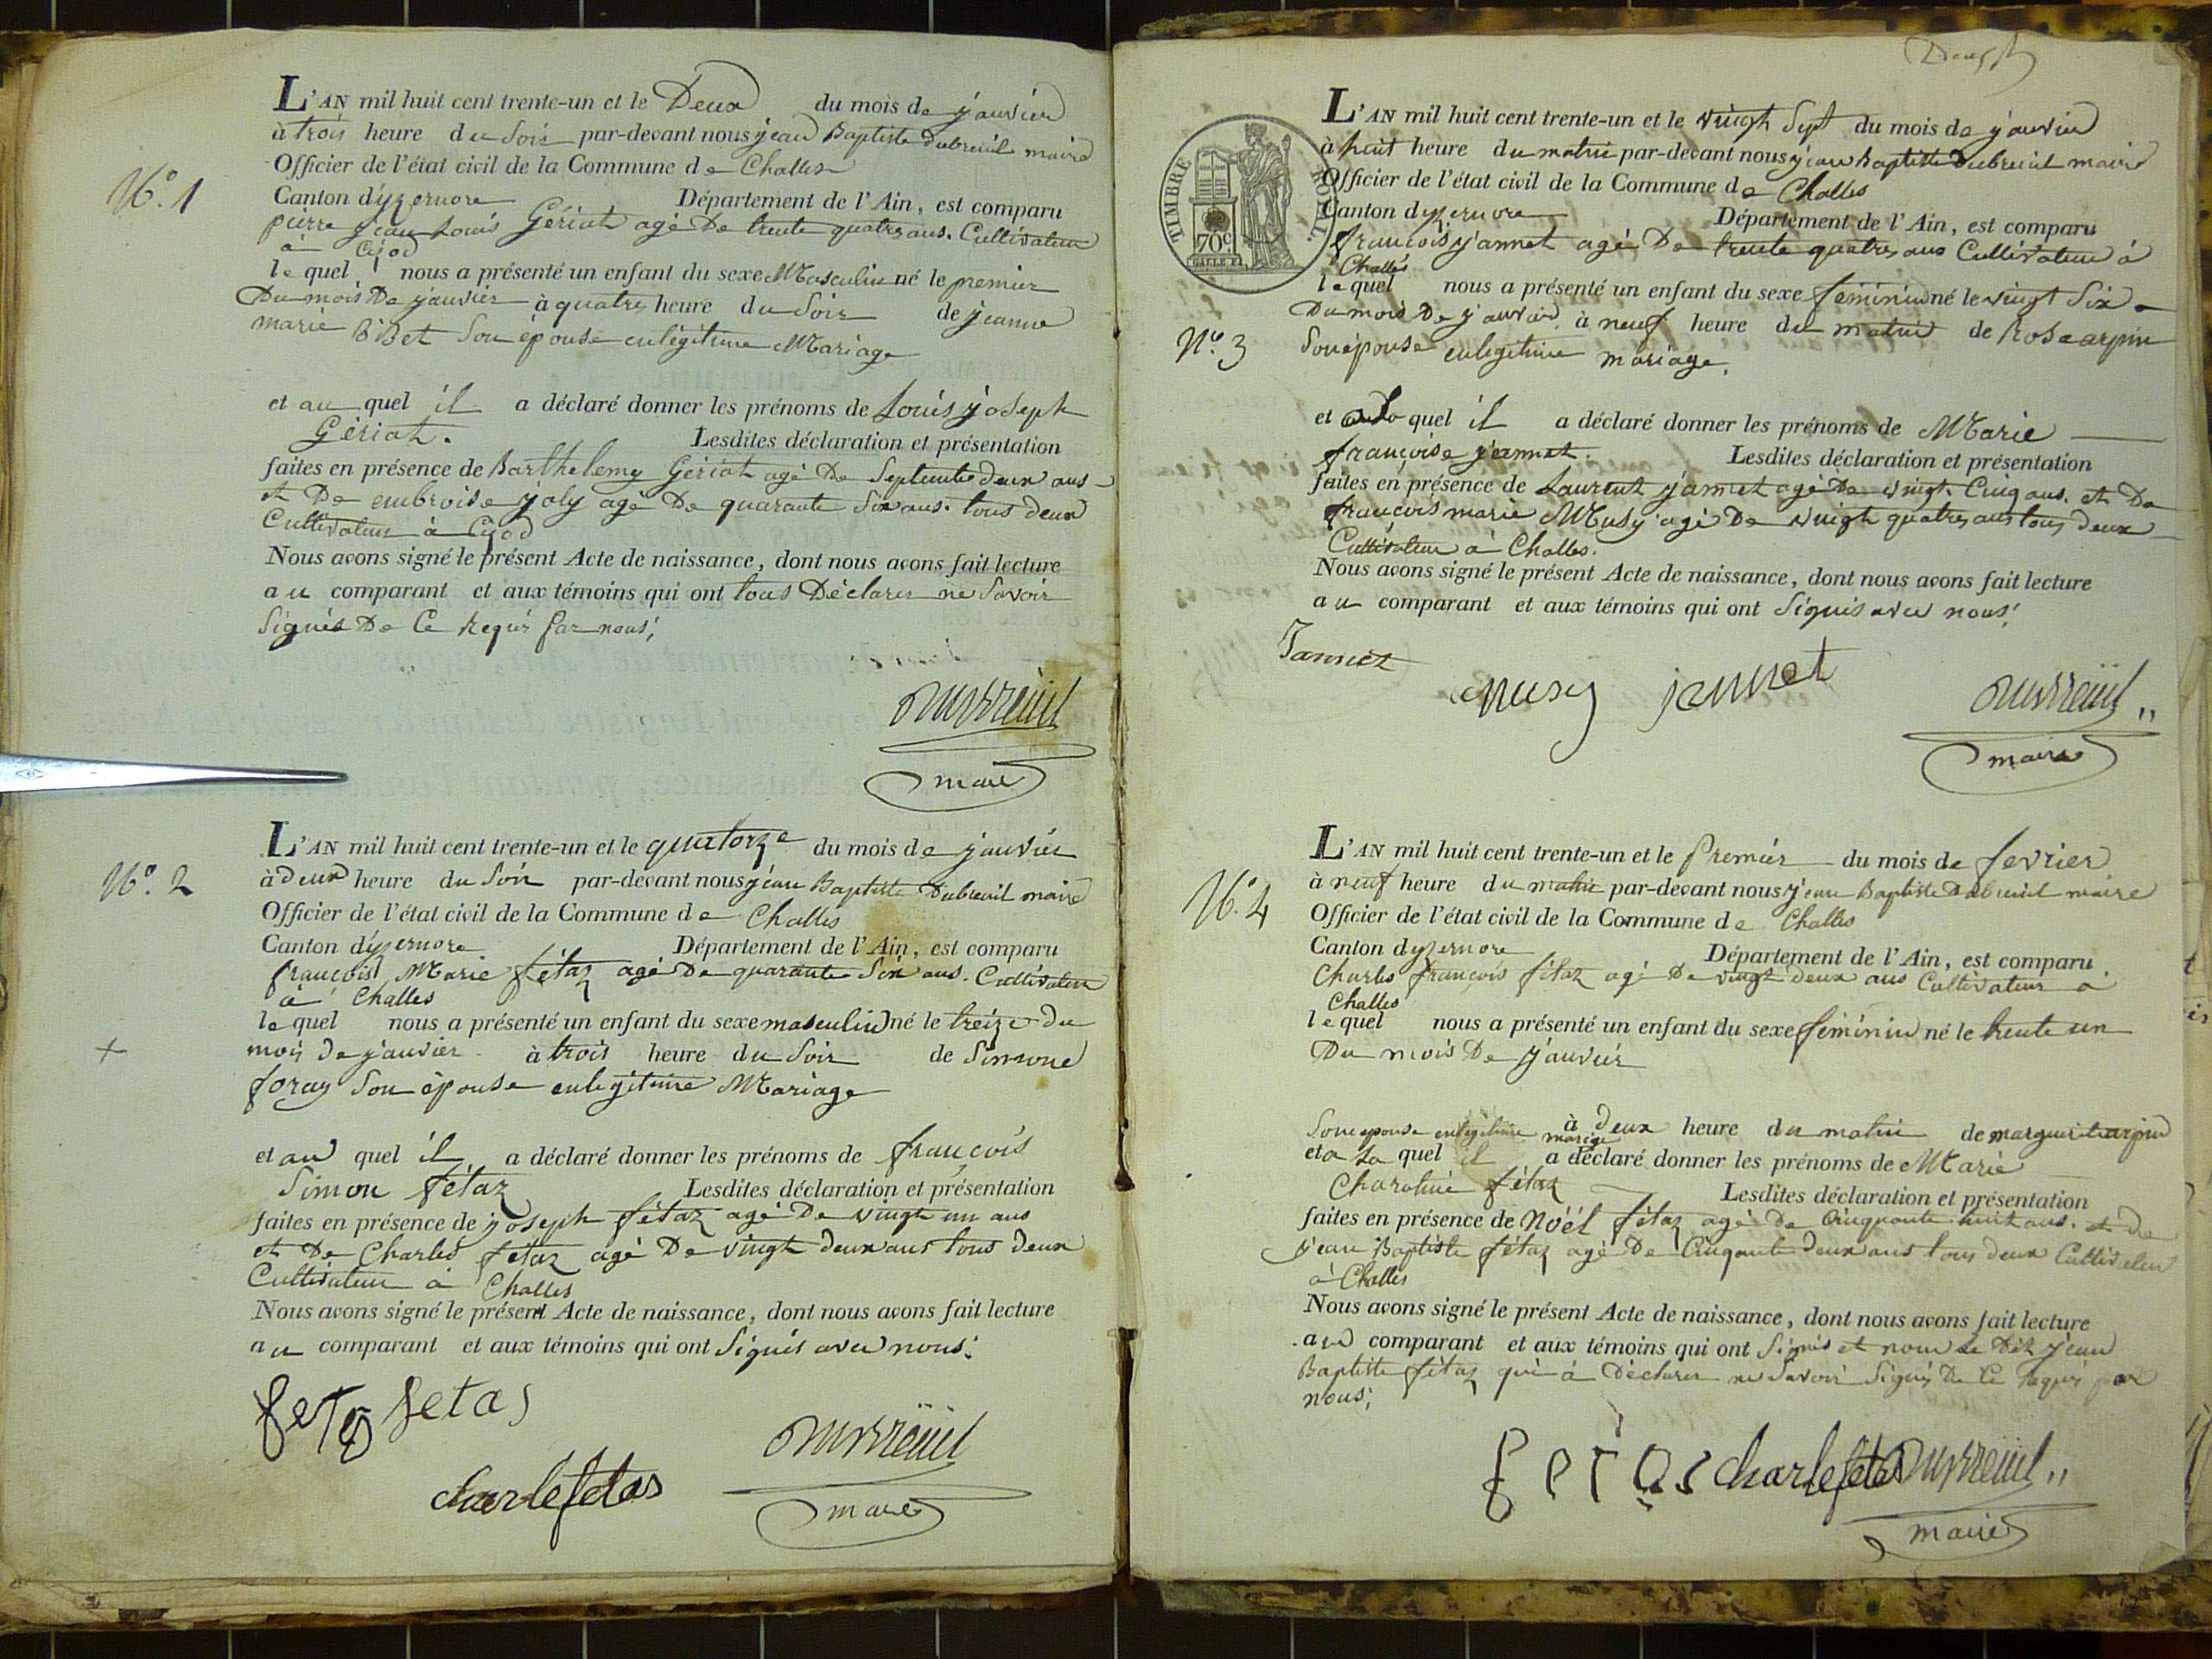 L'AN mil huit cent trente-un et le Deux du mois de janvier
à trois heure du Soir par-devant nous jean Baptiste dubreuil maire
Officier de l'état civil de la Commune de Challes
N.° 1
Canton d'yzernore Département de l'Ain, est comparu
pierre jean Louis Gériat agé De trente quatres ans. Cultivateur
à Cijod
lequel nous a présenté un enfant du sexe Masculin né le premier
Du mois De janvier à quatres heure du Soir de jeanne
marie BiBet Son épouse enlégitime Mariage
et au quel il a déclaré donner les prénoms de Louis joseph
Gériat. Lesdites déclaration et présentation
faites en présence de Barthelemy Gériat agé De Septente deux ans
et De embroise joly agé De quarante Six ans. tous deux
Cultivateur à Cijod
Nous avons signé le présent Acte de naissance, dont nous avons fait lecture
au comparant et aux témoins qui ont tous Déclarer ne Savoir
Signés De Ce Requis par nous;
Dubreüil
maire
L'AN mil huit cent trente-un et le quatorze du mois de janvier
N.° 2
à deux heure du Soir par-devant nous jean Baptiste Dubreuil maire
Officier de l'état civil de la Commune de Challes
Canton d'yzernore Département de l'Ain, est comparu
françois Marie fétaz agé De quarante Six ans. Cultivateur
à Challes
lequel nous a présenté un enfant du sexe masculin né le treize du
mois de janvier. à trois heure du Soir de Simone
foray Son épouse enlegitime Mariage
et au quel il a déclaré donner les prénoms de françois
Simon fétaz Lesdites déclaration et présentation
faites en présence de joseph fétaz agé De vingt un ans
et De Charles fétaz agé De vingt deux ans tous deux
Cultivateur à Challes
Nous avons signé le présent Acte de naissance, dont nous avons fait lecture
au comparant et aux témoins qui ont Signés avec nous.
fetas
charle fetas
Dubreüil
maire
TIMBRE ROYAL.
70c.
L'AN mil huit cent trente-un et le vingt Sept du mois de janvier
à huit heure du matin par-devant nous jean Baptiste Dubreuil maire
Officier de l'état civil de la Commune de Challes
Canton dyzernore Département de l'Ain, est comparu
francois jannet agé De trente quatres ans Cultivateur à
Challes
lequel nous a présenté un enfant du sexe féminin né le vingt Six
Du mois De janvier à neuf heure du matin de Rose arpin
N.° 3
Son épouse enlegitime mariage.
et a la quel il a déclaré donner les prénoms de Marie
françoise jannet. Lesdites déclaration et présentation
faites en présence de Laurent jannet agé De vingt. Cinq ans. et De
françois marie Musy agé De vingt quatres ans tous deux
Cultivateur à Challes.
Nous avons signé le présent Acte de naissance, dont nous avons fait lecture
au comparant et aux témoins qui ont Signés avec nous.
Jannet
musy jannet
Dubreüil
maire
L'AN mil huit cent trente-un et le Premier du mois de fevrier
à neuf heure du matin par-devant nous jean Baptiste Dubreuil maire
N.° 4
Officier de l'état civil de la Commune de Challes
Canton dyzernore Département de l'Ain, est comparu
Charles françois fétaz agé De vingt deux ans Cultivateur à
Challes
lequel nous a présenté un enfant du sexe féminin né le trente un
Du mois De janvier
Son epouse enlegitime mariage à deux heure du matin de marguerite arpin
et a La quel il a déclaré donner les prénoms de Marie
Charoline fétaz Lesdites déclaration et présentation
faites en présence de Noél fétaz agé De Cinquante huit ans. et De
jean Baptiste fétaz agé De Cinqante deux ans tous deux Cultivateur
à Challes
Nous avons signé le présent Acte de naissance, dont nous avons fait lecture
au comparant et aux témoins qui ont Signés et nom Le Dit jean
Baptiste fétaz qui à Déclarer ne Savoir Signés De Ce Requis par
nous;
fetas charle fetas Dubreüil
maire